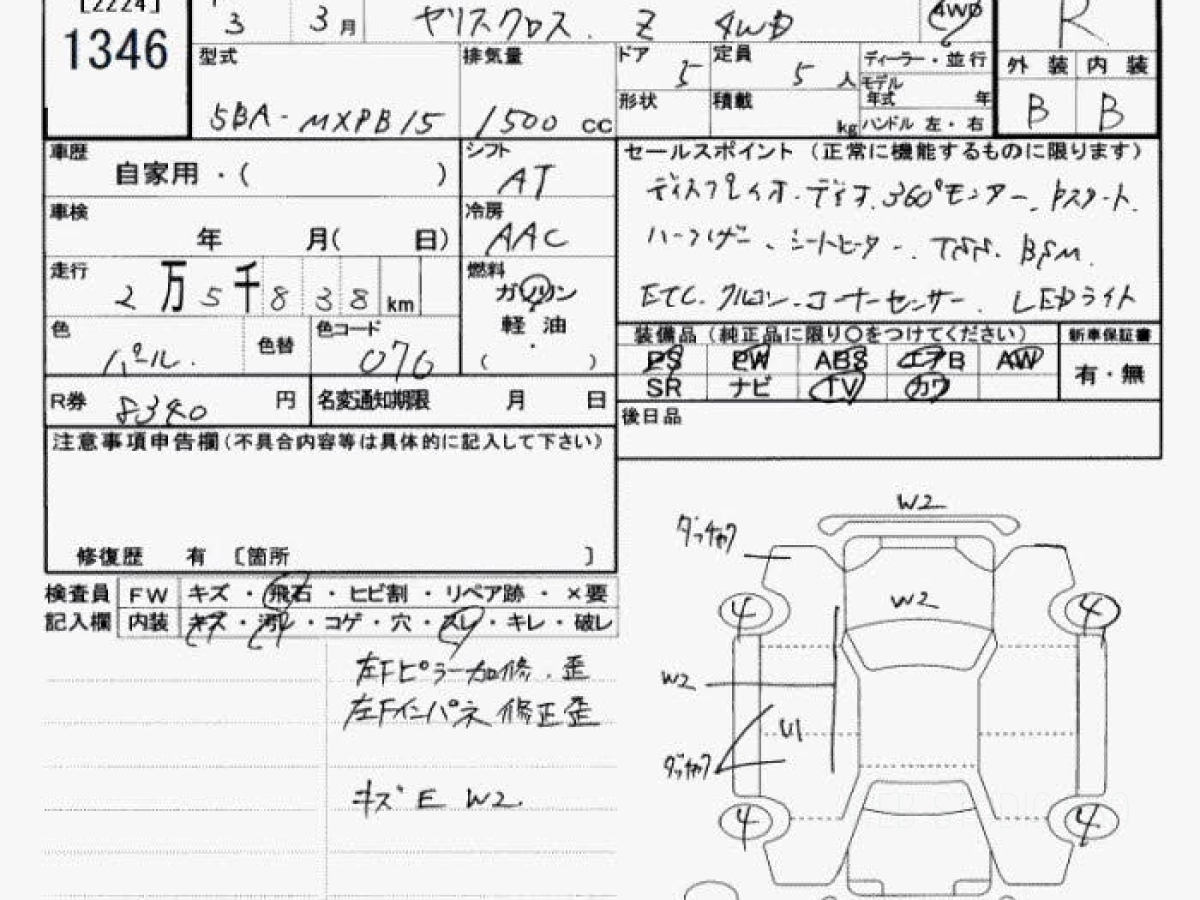 [2224]
1346
3 3月 ヤリスクロス Z 4WD 4WD R
型式 5BA-MXPB15
排気量 1500 cc
ドア 5 定員 5人 ディーラー・並行
モデル年式 年
形状 積載 kg ハンドル 左・右
外装 内装
B B
車歴 自家用・( )
シフト AT
車検 年 月( 日)
冷房 AAC
走行 2万5千838km
燃料 ガソリン
軽油
( ・ )
色 パール. 色替 色コード 070
R券 8340 円 名変通知期限 月 日
セールスポイント(正常に機能するものに限ります)
ディスプレイオーディオ.360°モニター.Pスタート.
シートヒーター. TSS. BSM.
ETC. クルコン.コーナーセンサー. LEDライト
装備品(純正品に限り○をつけてください) 新車保証書
PS PW ABS エアB AW 有・無
SR ナビ TV カワ
後日品
注意事項申告欄(不具合内容等は具体的に記入して下さい)
修復歴 有 〔箇所 〕
検査員 FW キズ・飛石・ヒビ割・リペア跡・×要
記入欄 内装 キズ・汚レ・コゲ・穴・スレ・キレ・破レ
左Fピラー加修.歪
左Fインパネ修正歪
キズ E W2.
W2
ダッチャク
W2
4 4
W2
U1
ダッチャク
4 4